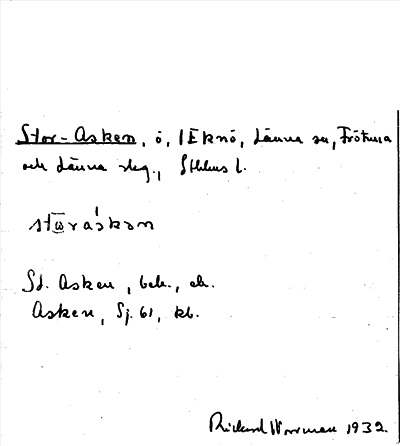 Stor-Asken, ö, /Eknö, Länna sn, Frötuna
och Länna skg., Sthlms l.
stωràskən
St. Asken, bek., ek.
Asken, Sj. 61, kb.
Rickard Wornman 1932.